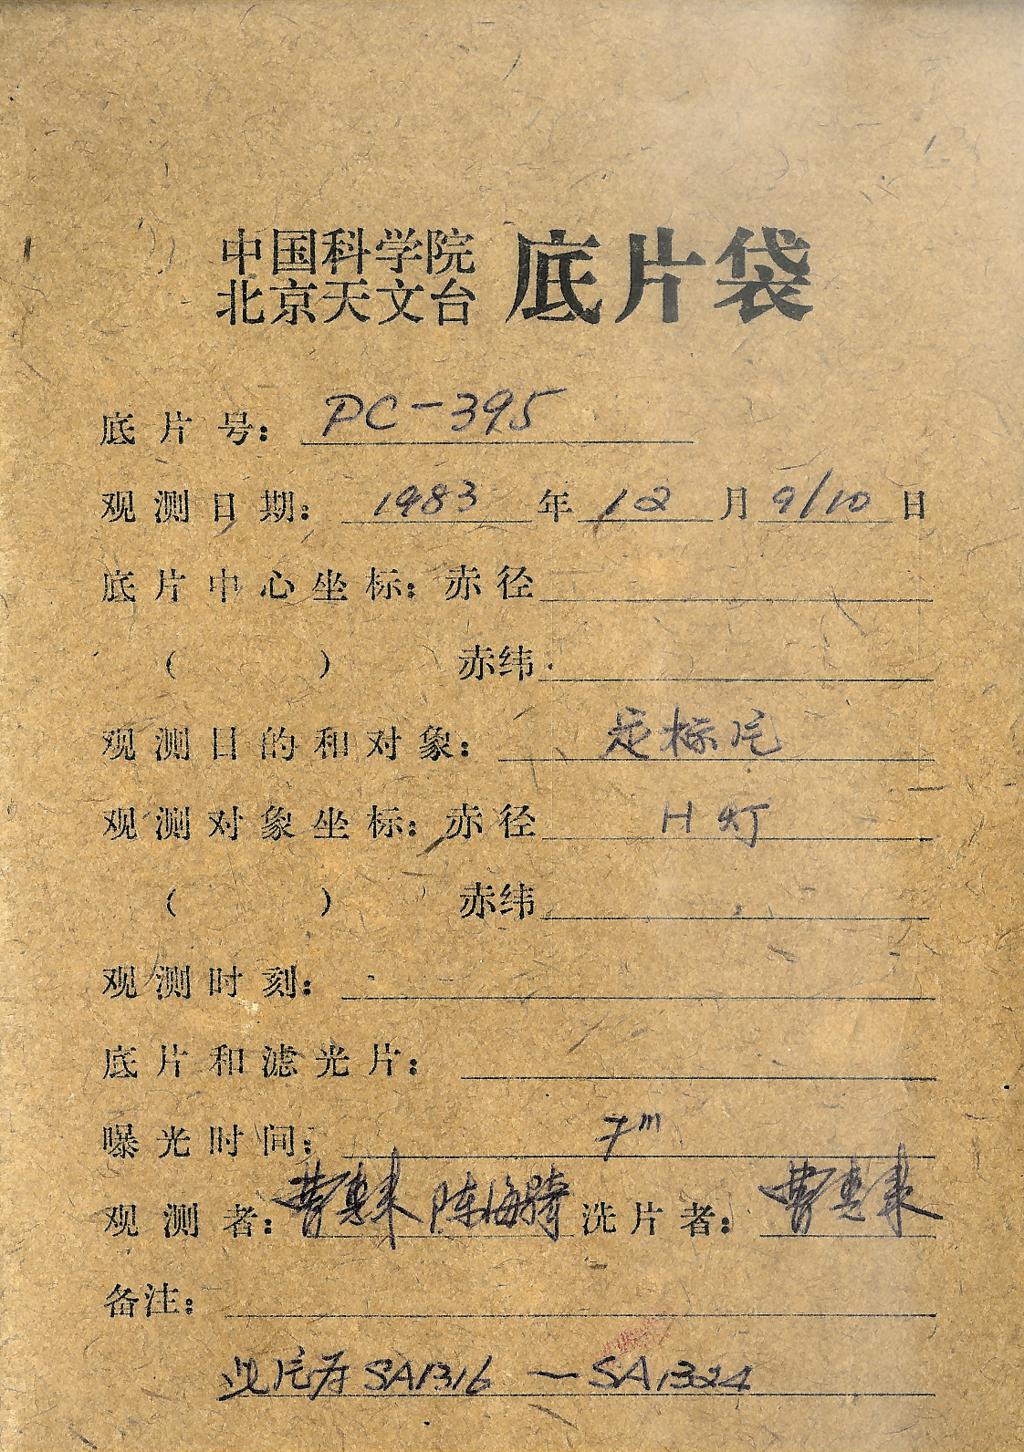 中国科学院
北京天文台 底片袋
底片号: PC-395
观测日期: 1983 年 12 月 9/10 日
底片中心坐标: 赤径
( ) 赤纬
观测目的和对象: 定标片
观测对象坐标: 赤径 H灯
( ) 赤纬
观测时刻:
底片和滤光片:
曝光时间: 7m
观测者: 曹惠来 陈海骑 洗片者: 曹惠来
备注:
此片为SA1316 — SA1324